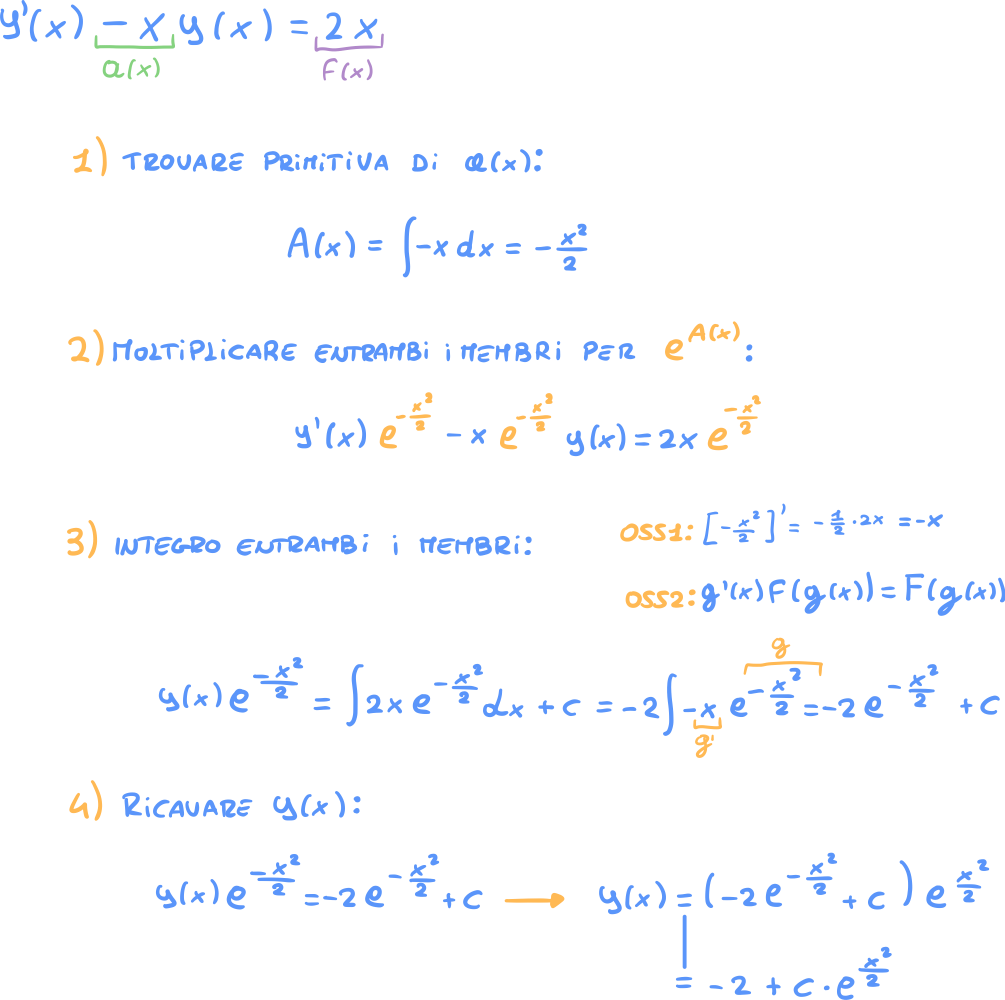 y'(x) - x y(x) = 2x
a(x) F(x)
1) TROVARE PRIMITIVA DI a(x):
A(x) = ∫-x dx = - x²/2
2) MOLTIPLICARE ENTRAMBI I MEMBRI PER e^A(x):
y'(x) e^(-x²/2) - x e^(-x²/2) y(x) = 2x e^(-x²/2)
3) INTEGRO ENTRAMBI I MEMBRI:
OSS1: [-x²/2]' = - 1/2 · 2x = -x
OSS2: g'(x) F(g(x)) = F(g(x))
g
y(x) e^(-x²/2) = ∫2x e^(-x²/2) dx + c = -2∫-x e^(-x²/2) = -2 e^(-x²/2) + c
g'
4) RICAVARE y(x):
y(x) e^(-x²/2) = -2 e^(-x²/2) + c → y(x) = (-2 e^(-x²/2) + c) e^(x²/2)
= -2 + c · e^(x²/2)